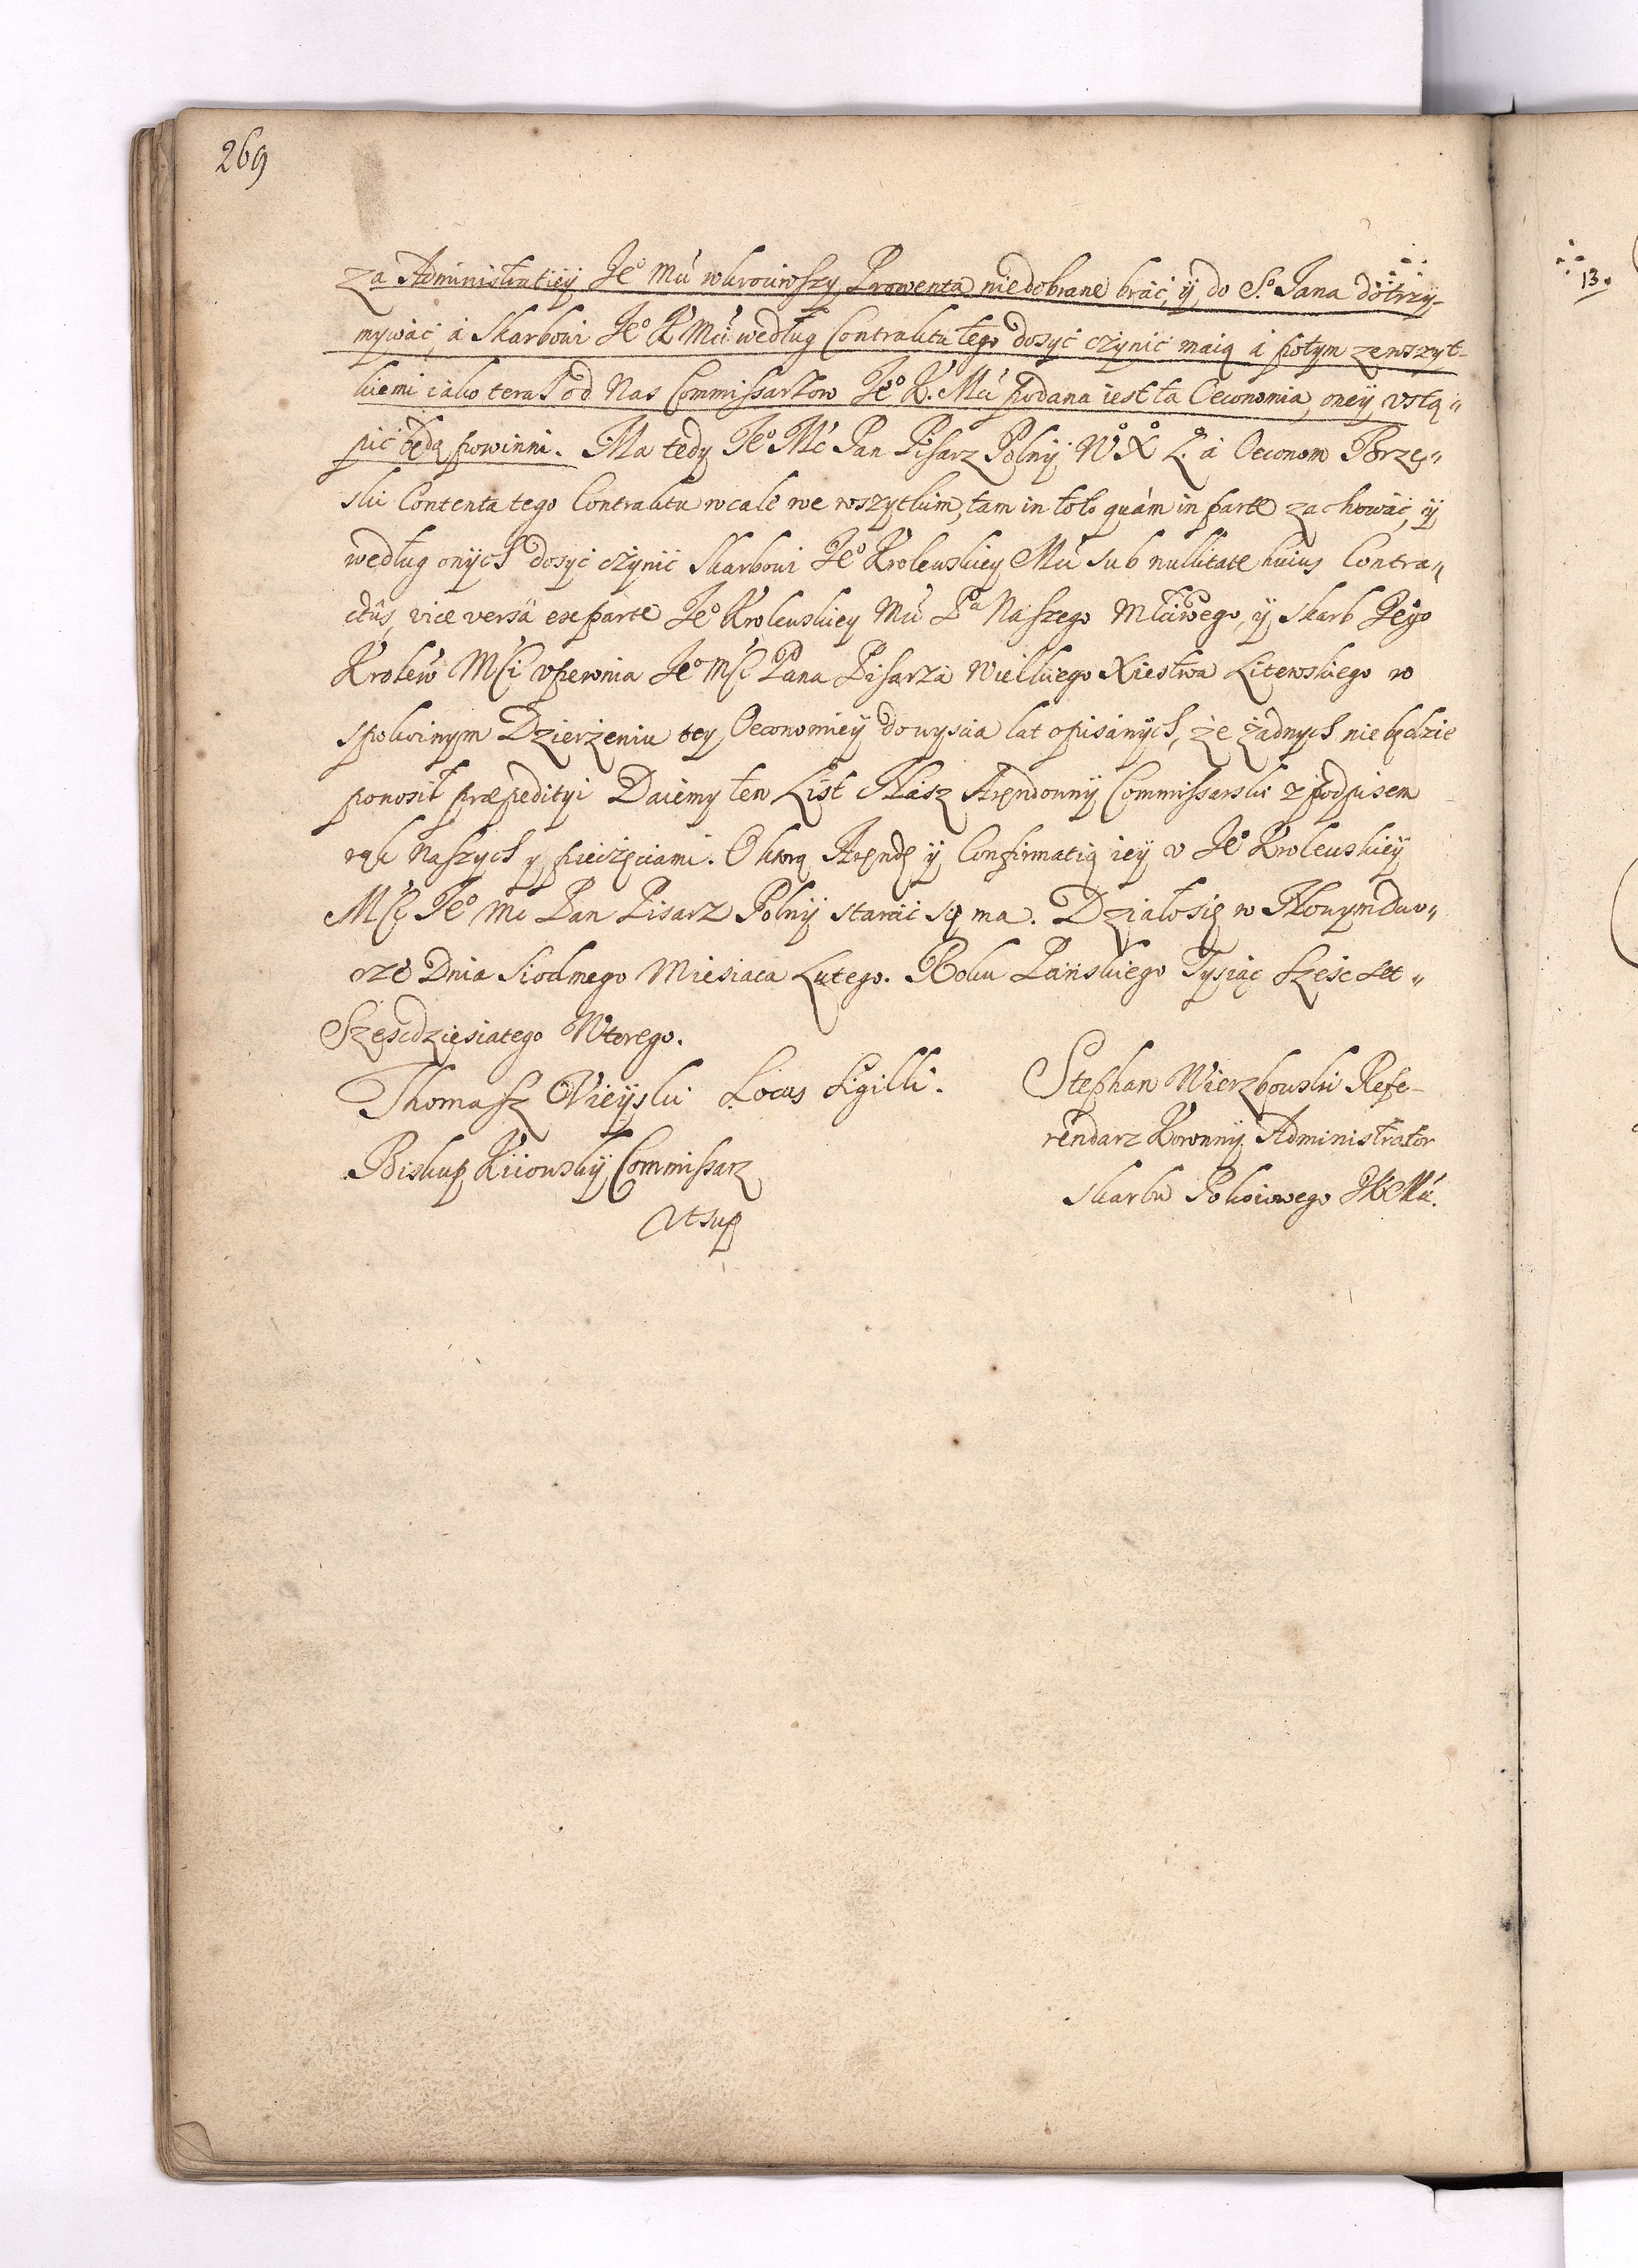 269
za Administratiey Jeº Mći wkrociwszy Prowenta niedobrane brać, ÿ do S.º Jana dotrzÿ-
mywać, á Skarbowi Jeº K Mći według Contraktu tego dosyć czynić maią á potym zewszyt-
kiemi iako teras od Nas Commissarzow Jeº K. Mći podana iest ta Oeconomia, oneÿ vstą„
pić będą powinni. Ma tedy Jeº Mć Pan Pisarz Polnÿ Wº Xº L. á Oeconom Brzes„
ski Contenta tego Contraktu wcale we wszytkim, tam in toto quám in parte zachować, ÿ
według onÿch dosyć czÿnić Skarbowi Jeº Krolewskiey Mći sub nullitate huius Contra„
ctûs, vice versâ ex parte Jeº Krolewskiey Mći Pª Naszego Mściwego, ÿ Skarb Jego
Krolew Mści vpewnia Jeº Mści Pana Pisarza Wielkiego Xiestwa Litewskiego w
spokoinym Dzierżeniu tey Oeconomieÿ do wyscia lat opisánÿch, że żadnych nie będzie
ponosił præpedityi Daiemy ten List Nász Arendownÿ Commissarski z podpisem
rąk Naszych y pieczęciami. O ktorą Arendę ÿ Confirmatią ieÿ v Jeº Krolewskieÿ
Mści Jeº Mć Pan Pisarz Polnÿ starać sę ma. Działo się w Nowym Dwo„
rze Dnia Siodmego Miesiaca Lutego. Roku Pańskiego Tysiąc Sześc Set„
Szescdziesiatego Wtorego.
Thomasz Vieÿski Locus Sigilli.
Biskup Kiiowskÿ Commissarz
vt sup
Stephan Wierzbowski Refe-
rendarz Koronnÿ Administrator
Skarbu Pokoiowego JKMći.
13.